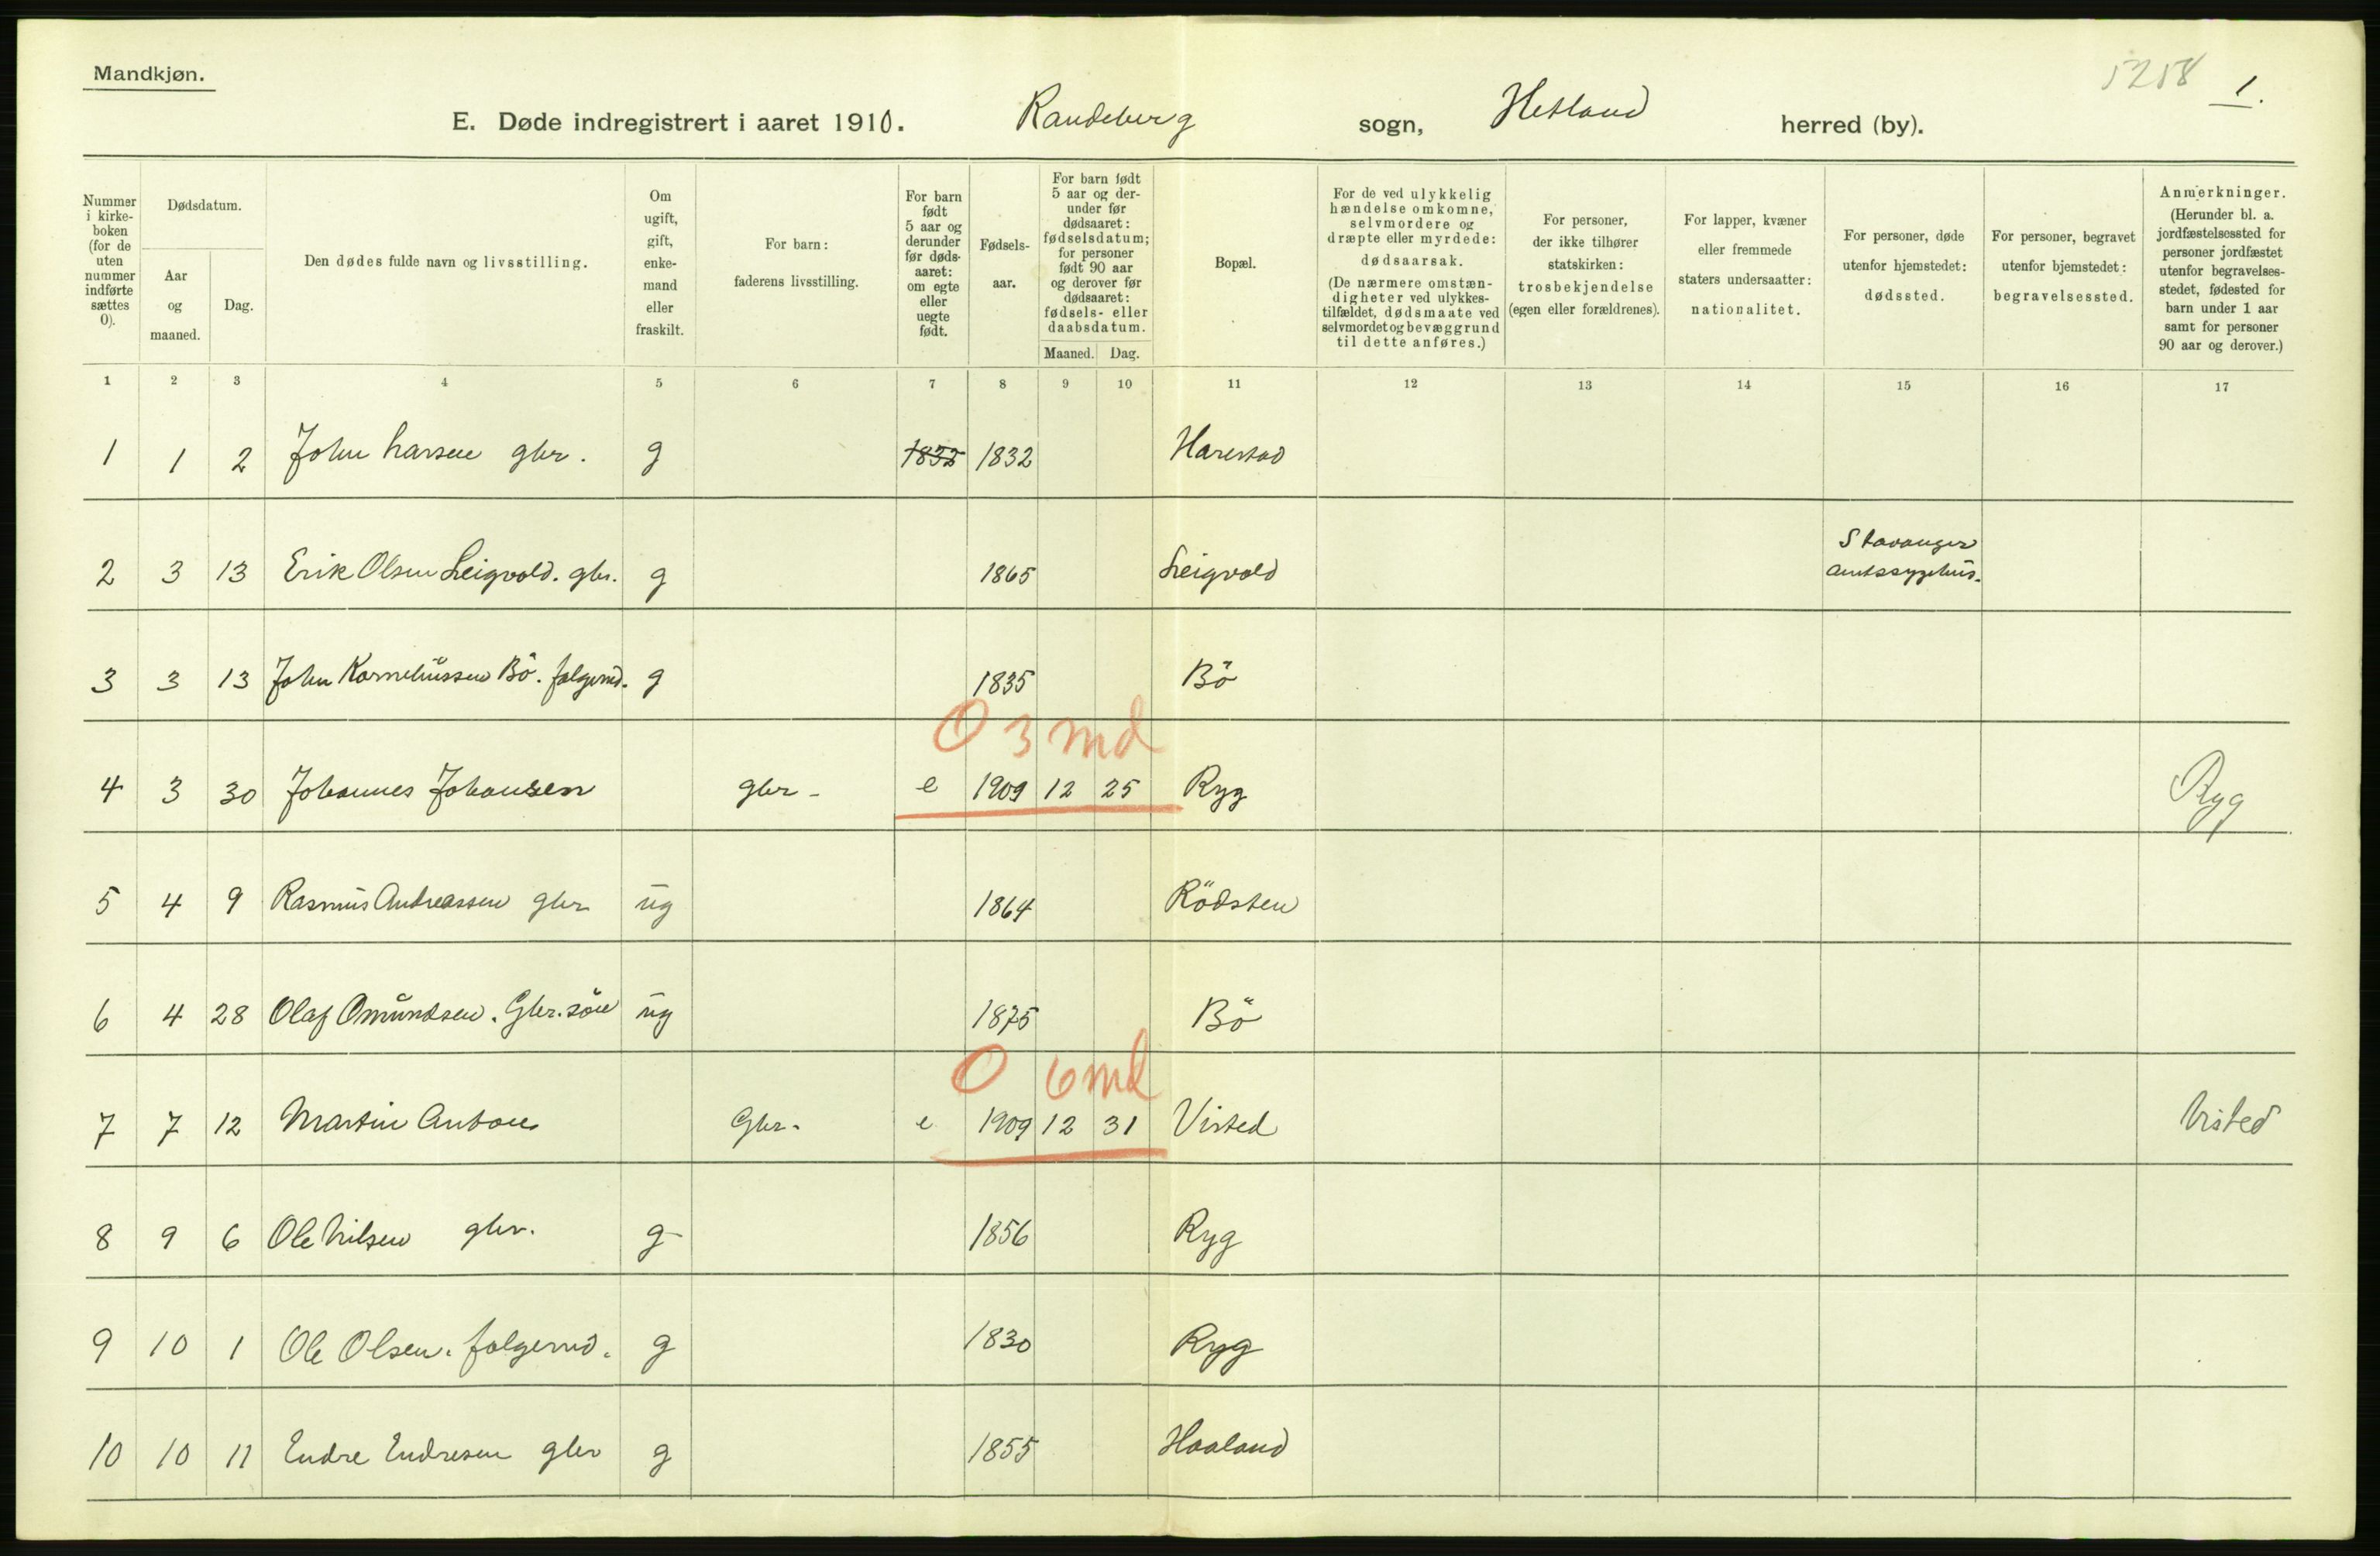 Mandkjøn.
5258 1.
E. Døde indregistrert i aaret 1910. Randeberg sogn, Hetland herred (by).
Nummer i kirkeboken (for de uten nummer indførte sættes 0).
Dødsdatum.
Aar og maaned.
Dag.
Den dødes fulde navn og livsstilling.
Om ugift, gift, enkemand eller fraskilt.
For barn: faderens livsstilling.
For barn født 5 aar og derunder før dødsaaret: om egte eller uegte født.
Fødselsaar.
For barn født 5 aar og derunder før dødsaaret: fødselsdatum; for personer født 90 aar og derover før dødsaaret: fødsels- eller daabsdatum.
Maaned. Dag.
Bopæl.
For de ved ulykkelig hændelse omkomne, selvmordere og dræpte eller myrdede: dødsaarsak. (De nærmere omstændigheter ved ulykkestilfældet, dødsmaate ved selvmordet og bevæggrund til dette anføres.)
For personer, der ikke tilhører statskirken: trosbekjendelse (egen eller forældrenes).
For lapper, kvæner eller fremmede staters undersaatter: nationalitet.
For personer, døde utenfor hjemstedet: dødssted.
For personer, begravet utenfor hjemstedet: begravelsessted.
Anmerkninger. (Herunder bl. a. jordfæstelsessted for personer jordfæstet utenfor begravelsesstedet, fødested for barn under 1 aar samt for personer 90 aar og derover.)
1 2 3 4 5 6 7 8 9 10 11 12 13 14 15 16 17
1 1 2 John Larsen gbr. g 1832 1832 Harestad
2 3 13 Erik Olsen Leigvold. gbr. g 1865 Leigvold Stavanger amtssygehus.
3 3 13 John Korneliussen Bö. folgemd. g 1835 Bö
0 3 md
4 3 30 Johannes Johansen gbr - e 1909 12 25 Ryg Ryg
5 4 9 Rasmus Andreassen gbr ug 1864 Rödsten
6 4 28 Olaf Omundsen. Gbr. sön ug 1875 Bö
0 6 md
7 7 12 Martin Anton Gbr. e 1909 12 31 Visted Visted
8 9 6 Ole Nilsen gbr. g 1856 Ryg
9 10 1 Ole Olsen. folgemd. g 1830 Ryg
10 10 11 Endre Endresen gbr g 1855 Haaland